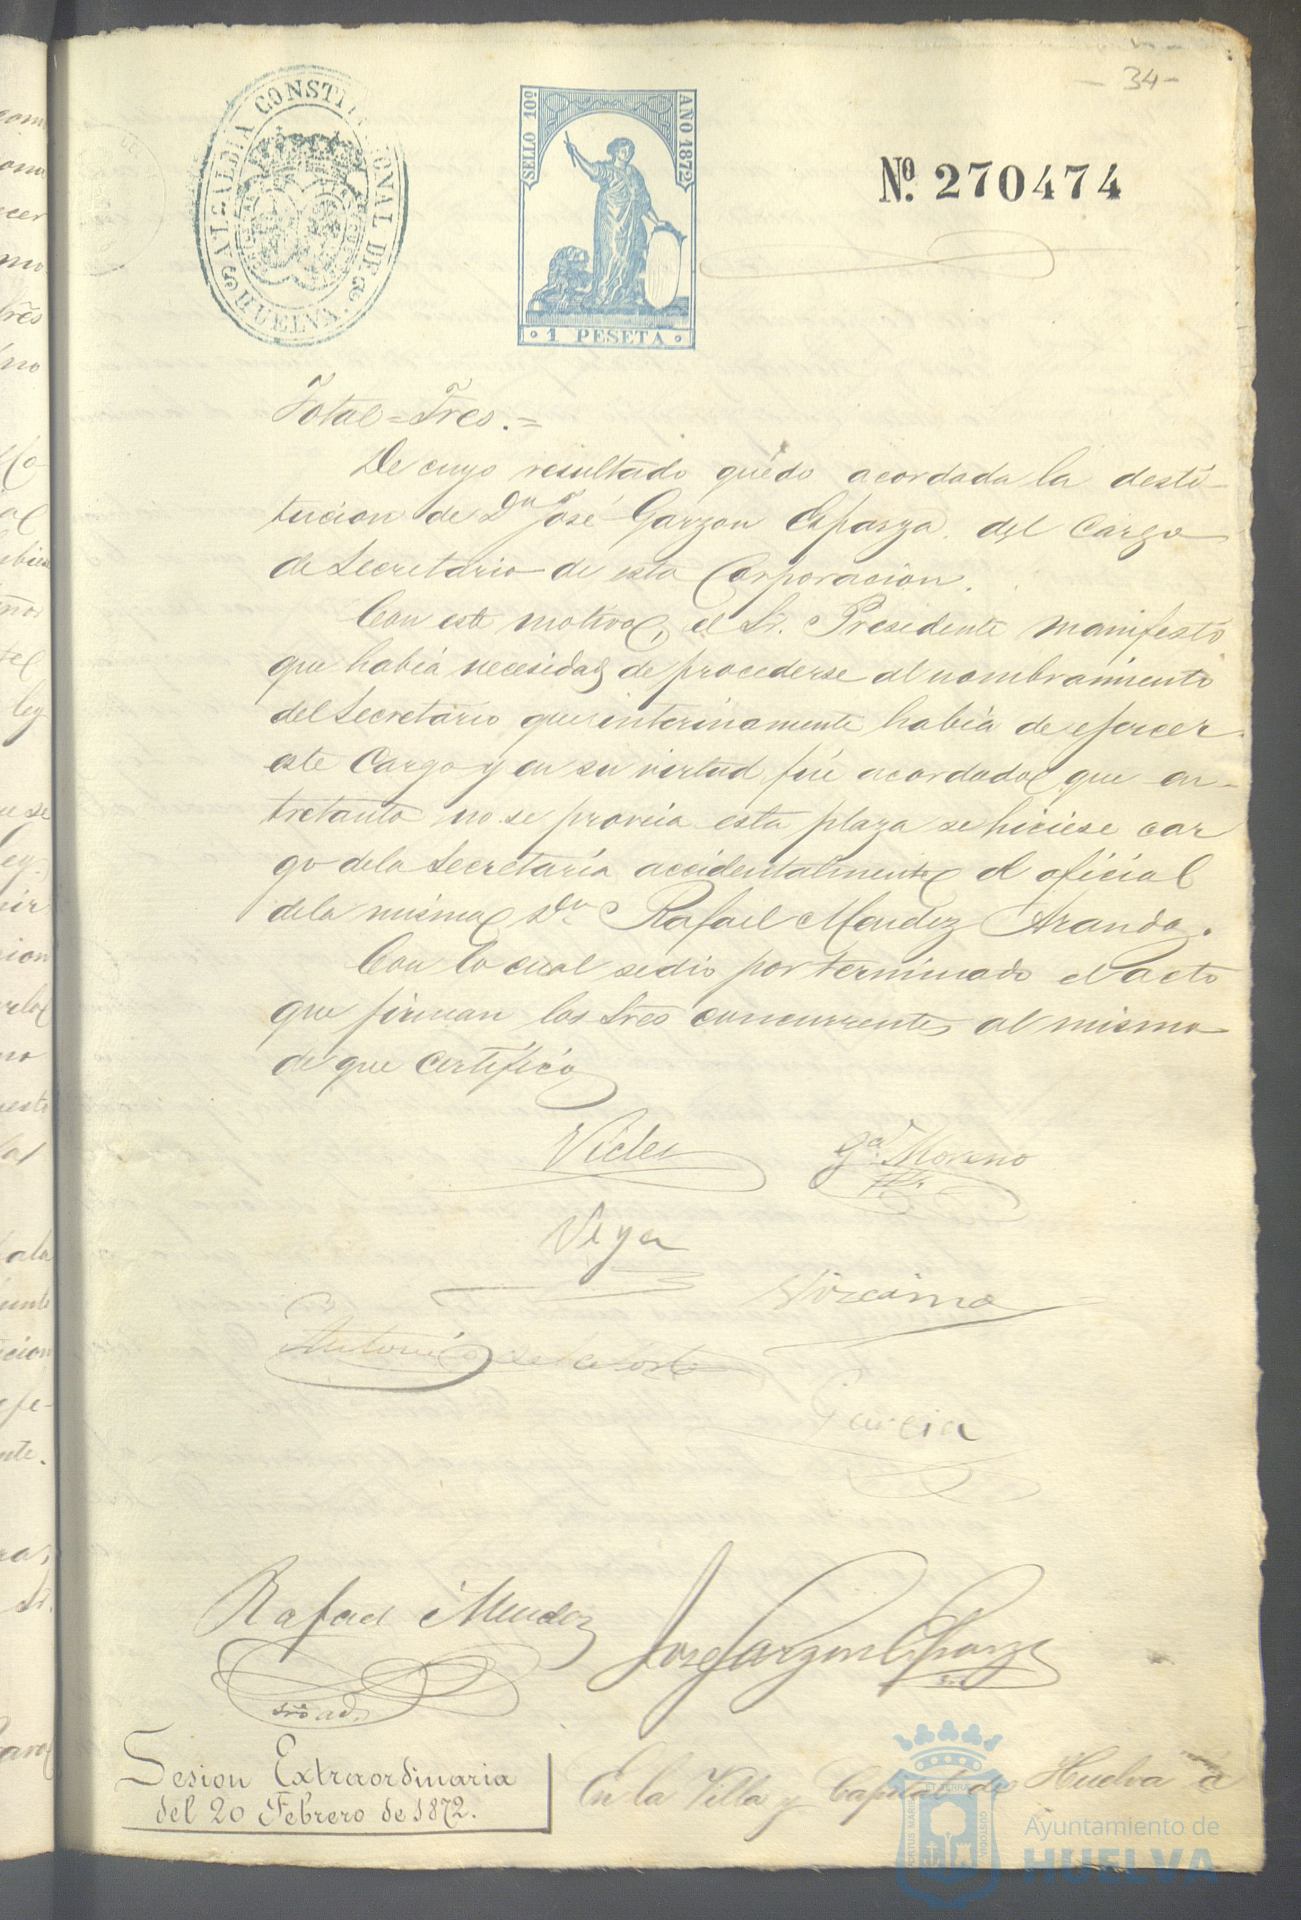 - 34 -
ALCALDIA CONSTITUCIONAL DE HUELVA.
SELLO 10º AÑO 1872
1 PESETA
Nº. 270474
Total = Tres. =
De cuyo resultado quedo acordada la desti-
tucion de Dn José Garzon Esparza del cargo
de Secretario de esta Corporacion.
Con este motivo, el Sr. Presidente manifestó
que habia necesidad de procederse al nombramiento
del Secretario que interinamente habia de ejercer
este Cargo y en su virtud fué acordado que en-
tretanto no se proveia esta plaza se hiciese car
go dela Secretaría accidentalmente el oficial
dela misma Dn Rafael Mendez Arando.
Con lo cual se dio por terminado el acto
que firman los Sres concurrentes al mismo
de que certifico
Gª Moreno
Vega
Vizcaino
Antonio de la Corte
Garcia
Rafael Mendez
Srio ad.
Jose Garzon Esparza
Sesion Extraordinaria
del 20 Febrero de 1872.
En la Villa y Capital de Huelva á
Ayuntamiento de
HUELVA